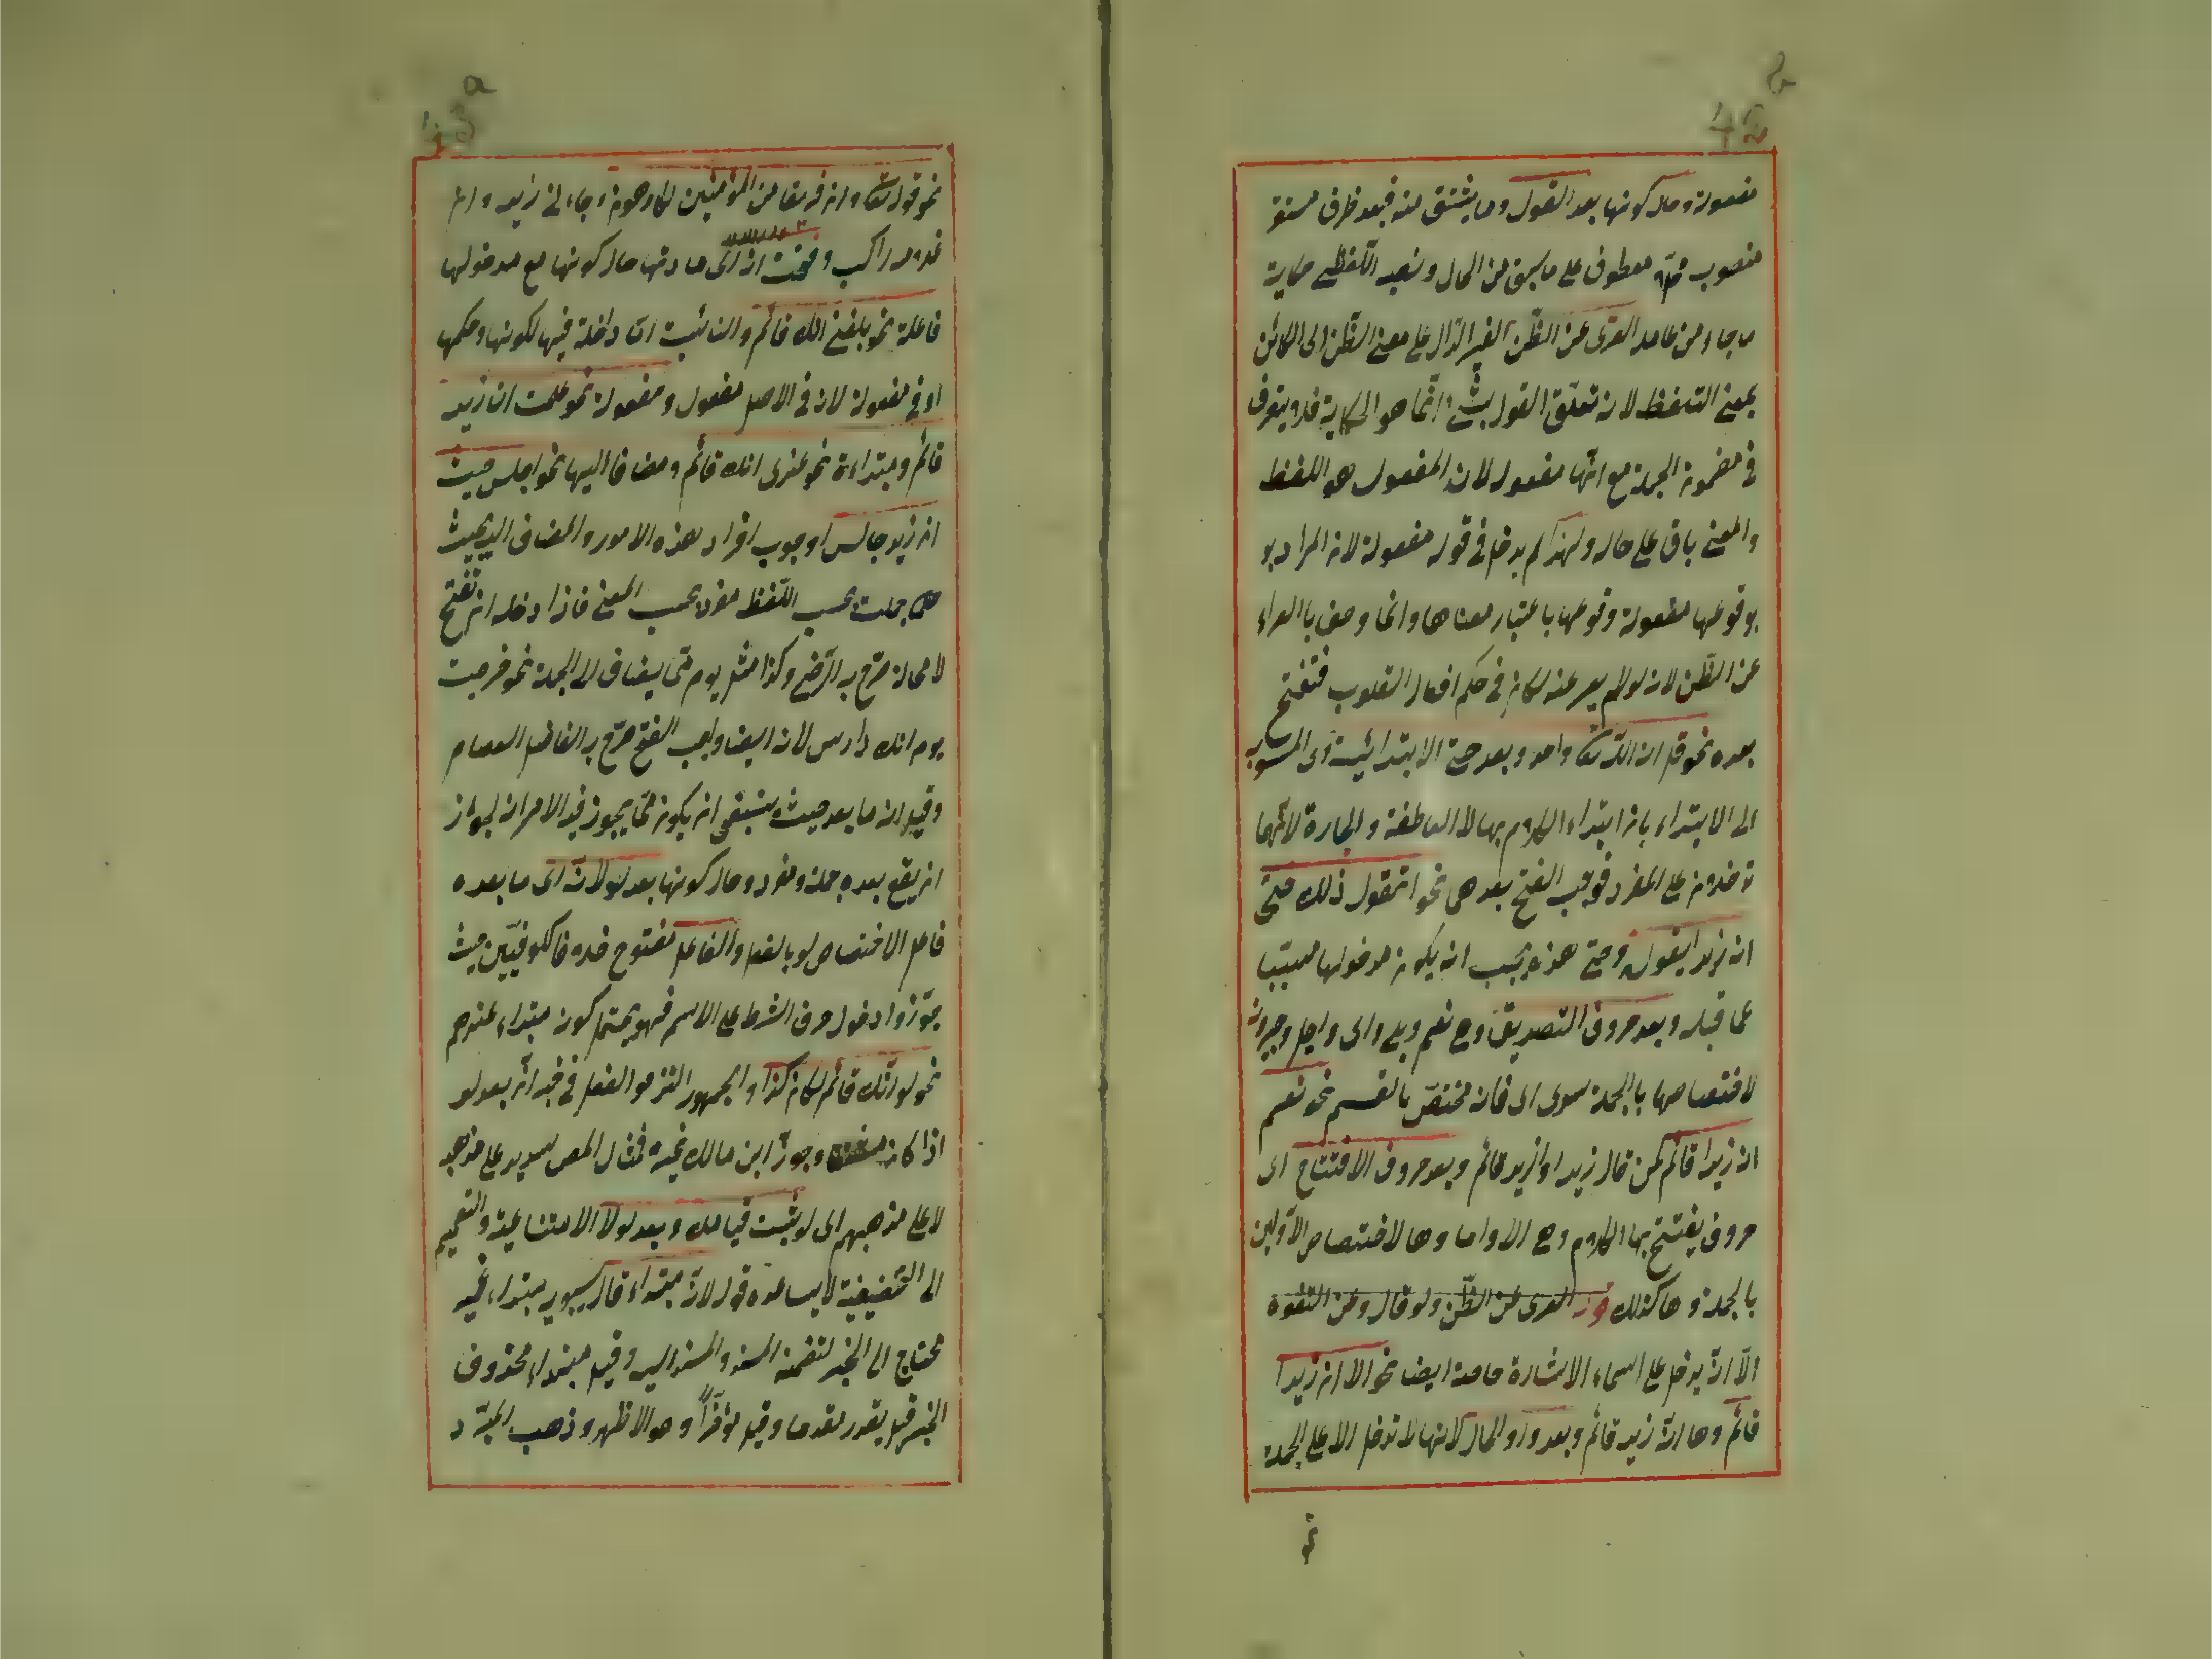 مفعولة وحال كونها بعد القول وما يشتق منه فبعد ظرف مستقر
منصوب معطوف على ما سبق من الحال وبعد اللفظ حكاية
العرى عن الظن الغير الدال على معنى الظن الى الكائن
بمعنى التلفظ لان تعلق القول انما هو الحكاية فلا يتصرف
فى مضمون الجملة مع انها مفعول لان المفعول هو اللفظ
والمعنى باق على حاله ولهذا لم يدخل فى قوله مفعولة لان المراد بو
بوقوعها مفعولة وقوعها باعتبار معناها وانما وصف بالعراء
عن الظن لانه لو لم يعر عنه لكان فى حكم افعال القلوب فتفتح
بعده نحو قل ان الله تعالى واحد وبعد حتى الابتدائية اى المنسوبة
الى الابتداء بان ابتداء الكلام بها لا العاطفة والجارة لانهما
تدخلان على المفرد فوجب الفتح بعدهما نحو اتقول ذلك حتى
ان زيدا يقوله وحتى هذه يجب ان يكون مدخولها مسببا
عما قبله وبعد حروف التصديق وهى نعم وبلى واى واجل وجير وان
لاختصاصها بالجملة سوى اى فانه مختص بالقسم نحو نعم
ان زيدا قائم لمن قال زيد اوازيد قائم وبعد حروف الافتتاح اى
حروف يفتتح بها الكلام وهى الا واما وها لاختصاص الاولين
بالجملة وها كذلك العرى عن الظن ولو قال ومن التفوه
الا ان يدخل على اسماء الاشارة خاصة ايضا نحو الا ان زيدا
قائم وها ان زيد قائم وبعد واو الحال لانها لا تدخل الا على الجملة
نحو
نحو قوله تعالى وان فريقا من المؤمنين لكارهون وجاءنى زيد وان
غلامه راكب وفتحت ان اى مادتها حال كونها مع مدخولها
فاعلة نحو بلغنى انك قائم والنائبة ان داخلة فيها لكونها وحكمها
او فى مفعولة لان فى الاصل مفعول ومفعولة نحو علمت ان زيد
قائم ومبتداءة نحو عندى انك قائم ومضافا اليها نحو اجلس حيث
ان زيد جالس لوجوب افراد هذه الامور والمضاف اليه بحيث
جملة بحسب اللفظ مفرد بحسب المعنى فاذا دخله ان تفتح
لا محالة صرح به الرضى وكذا مثل يوم متى يضاف الى الجملة نحو خرجت
يوم انك دارس لان ايضا واجب الفتح صرح به الفاضل العصام
وقيل ان ما بعد حيث ينبغى ان يكون مما يجوز فيه الامران لجواز
ان يقع بعده جملة ومفرد وحال كونها بعد لو لان اى ما بعده
فاعل لاختصاص لو بالفعل والفاعل مفتوح خلافا للكوفيين حيث
جوزوا دخول حرف الشرط على الاسم فهو يحتمل كون مبتداء عندهم
نحو لو انك قائم لكان كذا والجمهور التزموا الفعل فى خبر ان بعد لو
اذا كان وجوز ابن مالك غيره فمثال المص سديد على مذهبه
لا على مذهبهم اى لو ثبت قيامك وبعد لولا الامتناعية والتعميم
الى التحضيضية لا يساعده قوله لان مبتداء قال سيبويه مبتداء غير
محتاج الى الخبر لتضمنه المسند والمسند اليه وقيل مبتداء محذوف
الخبر قيل يقدر مقدما وقيل مؤخرا وهو الاظهر وذهب المبرد